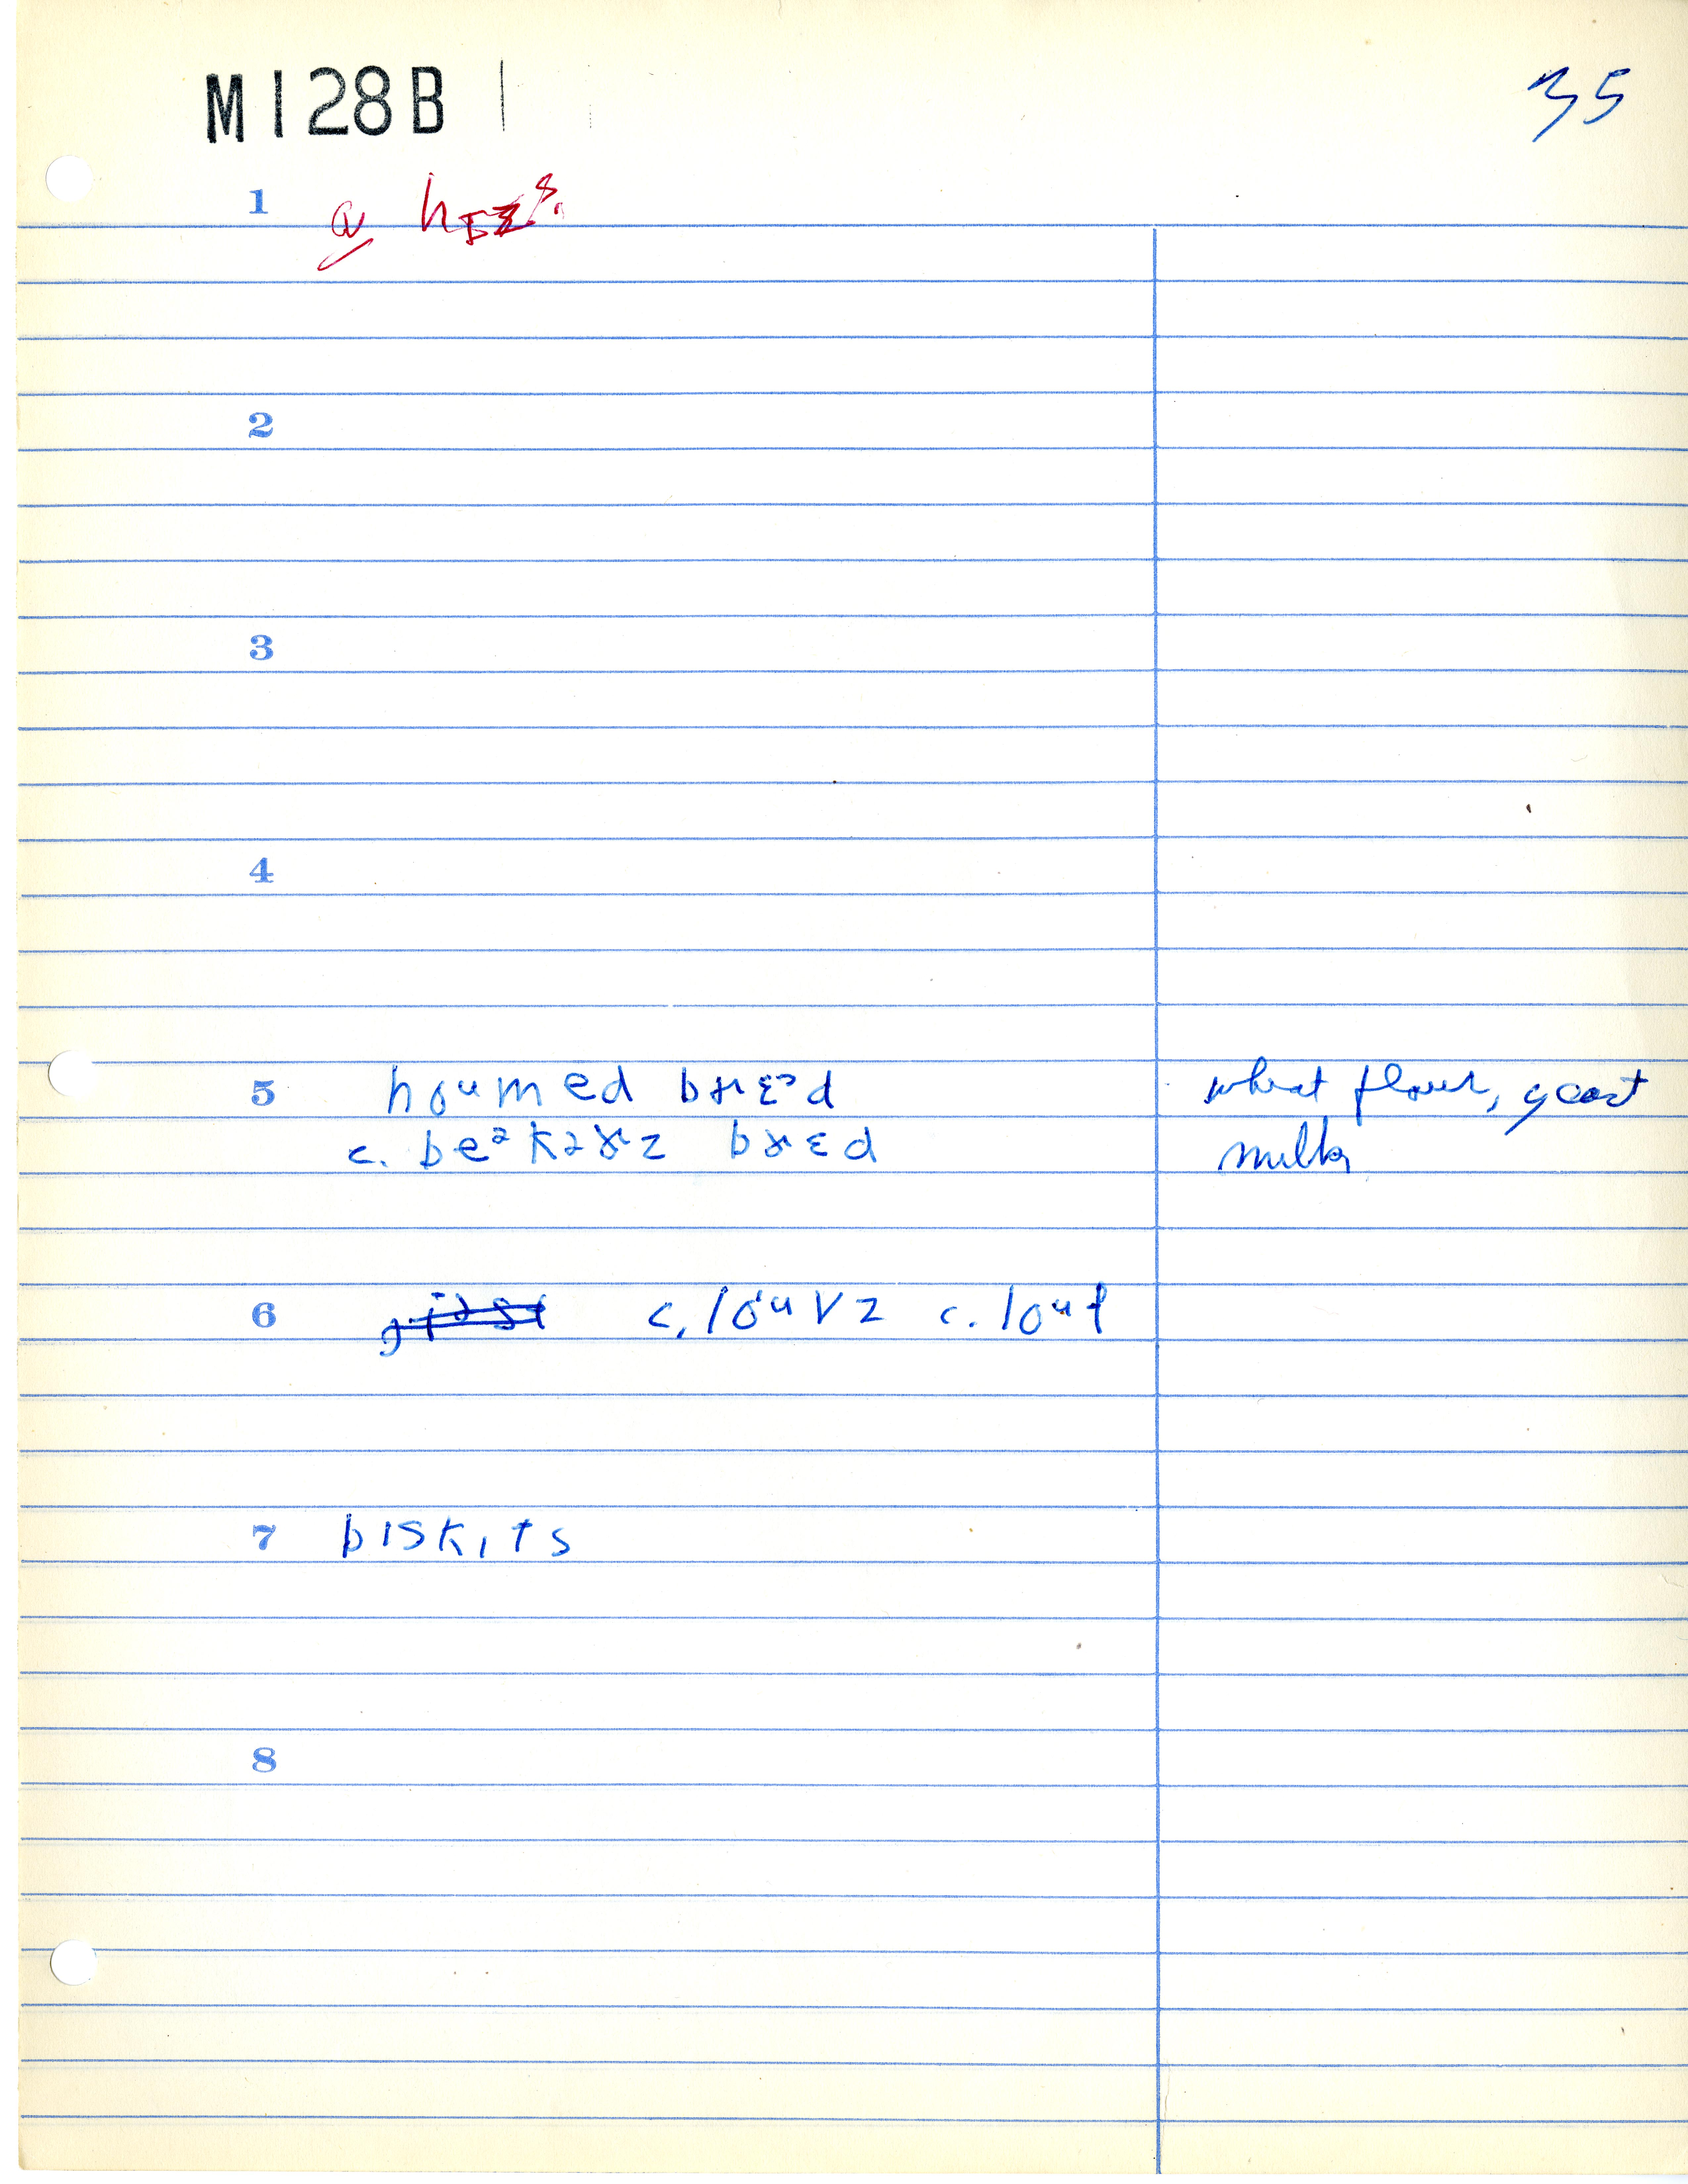 M128B
35
1
2
3
4
5 hoᵘmed bɹɛᵊd wheat flour, yeast
c. beᵊkəɹz bɹɛd milk
6 c. loᵘvz c. loᵘf
7 bɪskɪts
8